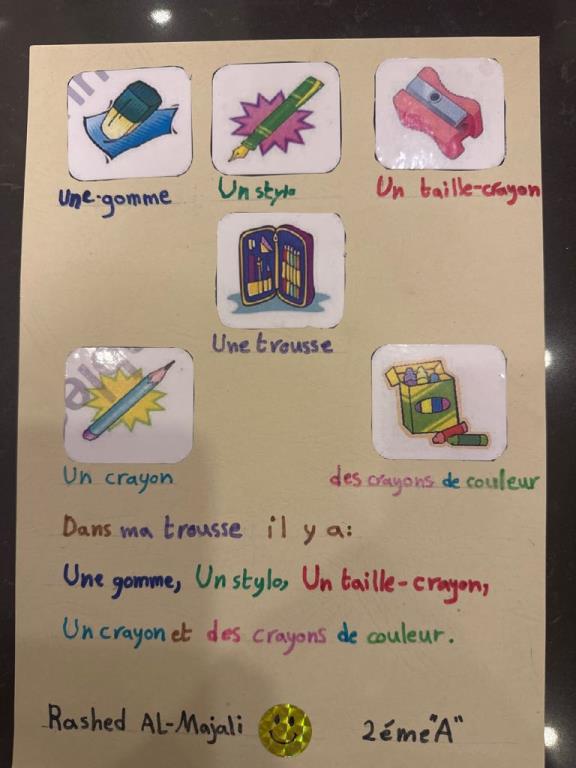 Une gomme
Un stylo
Un taille-crayon
Une trousse
Un crayon
des crayons de couleur
Dans ma trousse il y a:
Une gomme, Un stylo, Un taille-crayon,
Un crayon et des crayons de couleur.
Rashed AL-Majali
2éme "A"